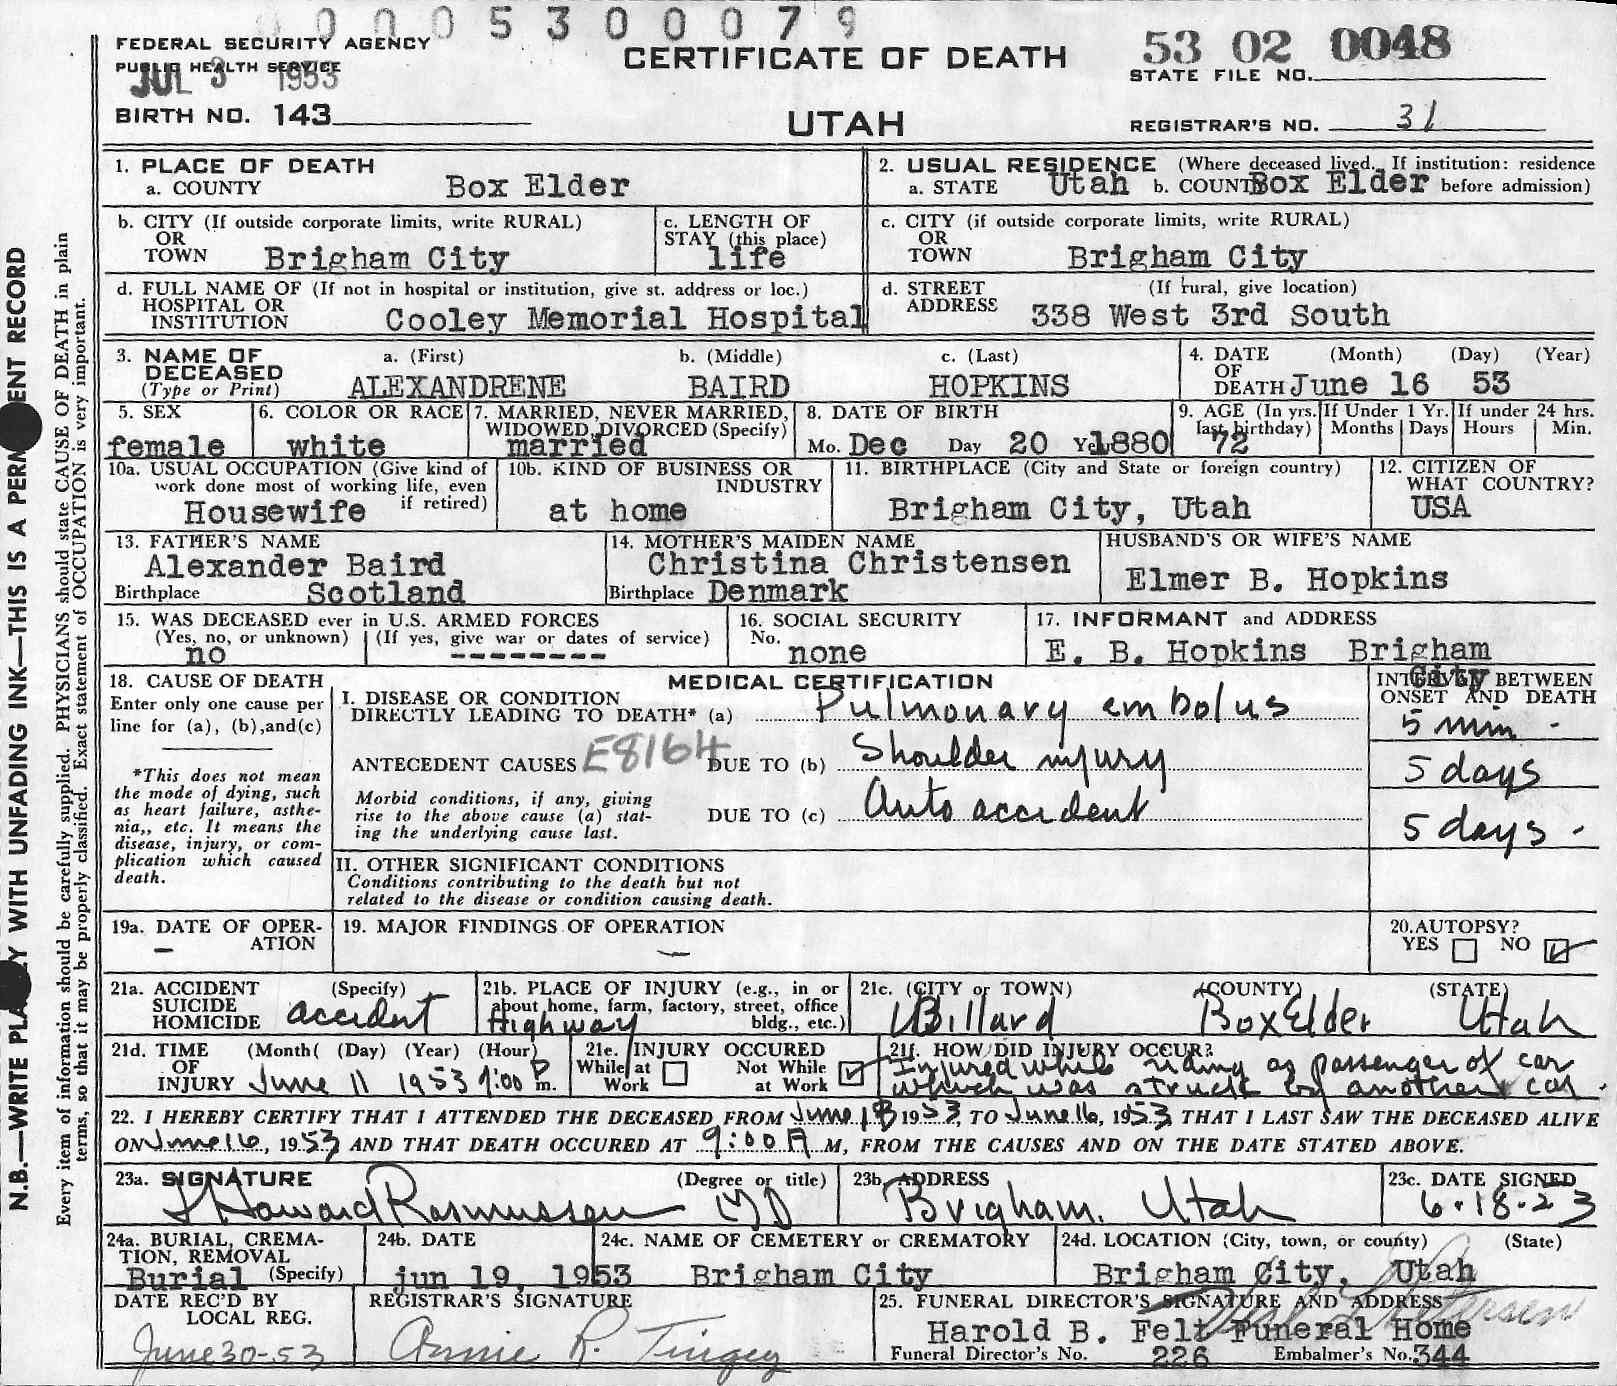 0 0 0 5 3 0 0 0 7 9
FEDERAL SECURITY AGENCY
PUBLIC HEALTH SERVICE
JUL 3 1953
CERTIFICATE OF DEATH
53 02 0048
STATE FILE NO.
BIRTH NO. 143
UTAH
REGISTRAR'S NO. 31
N.B.—WRITE PLA Y WITH UNFADING INK—THIS IS A PERM ENT RECORD
Every item of information should be carefully supplied. PHYSICIANS should state CAUSE OF DEATH in plain
terms, so that it may be properly classified. Exact statement of OCCUPATION is very important.
1. PLACE OF DEATH
a. COUNTY Box Elder
2. USUAL RESIDENCE (Where deceased lived. If institution: residence
a. STATE Utah b. COUNT Box Elder before admission)
b. CITY (If outside corporate limits, write RURAL)
OR
TOWN Brigham City
c. LENGTH OF
STAY (this place)
life
c. CITY (if outside corporate limits, write RURAL)
OR
TOWN Brigham City
d. FULL NAME OF (If not in hospital or institution, give st. address or loc.)
HOSPITAL OR
INSTITUTION Cooley Memorial Hospital
d. STREET (If rural, give location)
ADDRESS 338 West 3rd South
3. NAME OF a. (First) b. (Middle) c. (Last)
DECEASED
(Type or Print) ALEXANDRENE BAIRD HOPKINS
4. DATE (Month) (Day) (Year)
OF
DEATH June 16 53
5. SEX
female
6. COLOR OR RACE
white
7. MARRIED, NEVER MARRIED,
WIDOWED, DIVORCED (Specify)
married
8. DATE OF BIRTH
Mo. Dec Day 20 Ye 1880
9. AGE (In yrs.
last birthday)
72
If Under 1 Yr.
Months Days
If under 24 hrs.
Hours Min.
10a. USUAL OCCUPATION (Give kind of
work done most of working life, even
if retired)
Housewife
10b. KIND OF BUSINESS OR
INDUSTRY
at home
11. BIRTHPLACE (City and State or foreign country)
Brigham City, Utah
12. CITIZEN OF
WHAT COUNTRY?
USA
13. FATHER'S NAME
Alexander Baird
Birthplace Scotland
14. MOTHER'S MAIDEN NAME
Christina Christensen
Birthplace Denmark
HUSBAND'S OR WIFE'S NAME
Elmer B. Hopkins
15. WAS DECEASED ever in U.S. ARMED FORCES
(Yes, no, or unknown) (If yes, give war or dates of service)
no --------
16. SOCIAL SECURITY
No.
none
17. INFORMANT and ADDRESS
E. B. Hopkins Brigham
City
18. CAUSE OF DEATH
Enter only one cause per
line for (a), (b),and(c)
*This does not mean
the mode of dying, such
as heart failure, asthe-
nia,, etc. It means the
disease, injury, or com-
plication which caused
death.
MEDICAL CERTIFICATION
INTERVAL BETWEEN
ONSET AND DEATH
I. DISEASE OR CONDITION
DIRECTLY LEADING TO DEATH* (a) Pulmonary embolus
5 min.
ANTECEDENT CAUSES E8164 DUE TO (b) Shoulder injury
5 days
Morbid conditions, if any, giving
rise to the above cause (a) stat-
ing the underlying cause last.
DUE TO (c) Auto accident
5 days.
II. OTHER SIGNIFICANT CONDITIONS
Conditions contributing to the death but not
related to the disease or condition causing death.
19a. DATE OF OPER-
ATION
–
19. MAJOR FINDINGS OF OPERATION
—
20. AUTOPSY?
YES NO
21a. ACCIDENT (Specify)
SUICIDE
HOMICIDE accident
21b. PLACE OF INJURY (e.g., in or
about home, farm, factory, street, office
bldg., etc.)
Highway
21c. (CITY or TOWN) (COUNTY) (STATE)
Willard Box Elder Utah
21d. TIME (Month( (Day) (Year) (Hour)
OF
INJURY June 11 1953 9:00 P m.
21e. INJURY OCCURED
While at Not While
Work at Work
21f. HOW DID INJURY OCCUR?
Injured while riding as passenger of car
which was struck by another car.
22. I HEREBY CERTIFY THAT I ATTENDED THE DECEASED FROM June 13 1953, TO June 16, 1953 THAT I LAST SAW THE DECEASED ALIVE
ON June 16, 1953 AND THAT DEATH OCCURED AT 9:00 A M, FROM THE CAUSES AND ON THE DATE STATED ABOVE.
23a. SIGNATURE (Degree or title)
J Howard Rasmussen MD
23b. ADDRESS
Brigham, Utah
23c. DATE SIGNED
6-18-53
24a. BURIAL, CREMA-
TION, REMOVAL
(Specify)
Burial
24b. DATE
jun 19, 1953
24c. NAME OF CEMETERY or CREMATORY
Brigham City
24d. LOCATION (City, town, or county) (State)
Brigham City, Utah
DATE REC'D BY
LOCAL REG.
June 30-53
REGISTRAR'S SIGNATURE
Annie R. Tingey
25. FUNERAL DIRECTOR'S SIGNATURE AND ADDRESS
Harold B. Felt Funeral Home
Funeral Director's No. 226 Embalmer's No. 344